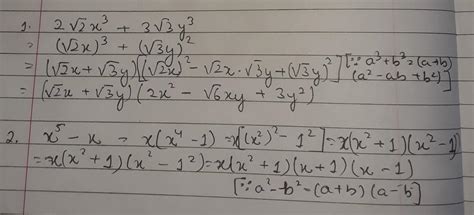 1. 2√2x³ + 3√3y³
= (√2x)³ + (√3y)²
= (√2x+√3y)[(√2x)² - √2x·√3y + (√3y)²] [∵ a³+b³=(a+b)
(a²-ab+b²)]
= (√2x+√3y)(2x² - √6xy + 3y²)
2. x⁵ - x = x(x⁴-1) = x[(x²)² - 1²] = x(x²+1)(x²-1)
= x(x²+1)(x²-1²) = x(x²+1)(x+1)(x-1)
[∵ a²-b²=(a+b)(a-b)]